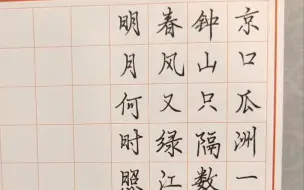 京口瓜洲一
钟山只隔数
春风又绿江
明月何时照